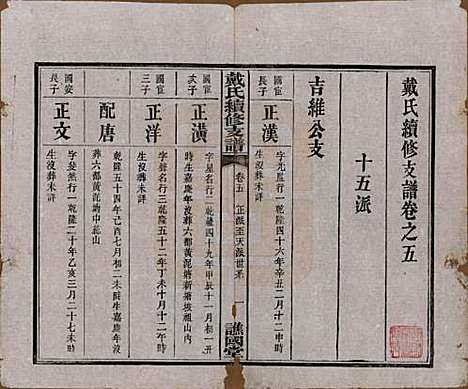 戴氏續修支譜卷之五
十五派
吉維公支
國宦長子
正漢
字光照行一乾隆四十六年辛丑二月十二申時
生沒葬未詳
國宦次子
正潢
字星名行二乾隆四十九年甲辰十一月初一丑
時生嘉慶年沒葬六都黃泥垅新塘坡祖山內
戴氏續修支譜
卷五
正派至天派世系
一
譙國堂
國宦三子
正洋
字聲名行三乾隆五十二年丁未十月十二午時
生沒葬未詳
配唐
乾隆五十四年己酉七月初二未時生嘉慶年沒
葬六都黃泥垅中乾山
國安長子
正文
字燊然行一乾隆二十年乙亥三月二十七未時
生沒葬未詳